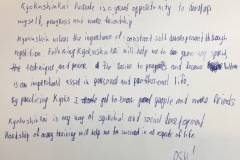 KyokushinKai Karate is a good opportunity to develop
myself, progress and make friendship
Kyokushin values the importance of constant self development through
repetition. Following Kyokushin will help me to grow my spirit,
the technique, and power. The desire to progress and become better
is an important asset in personal and professional life.
By practicing Kyoku I get to know great people and make friends
Kyokushinkai is my way of spiritual and social development
Hardship of many training will help me to succeed in all aspects of life.
OSU!